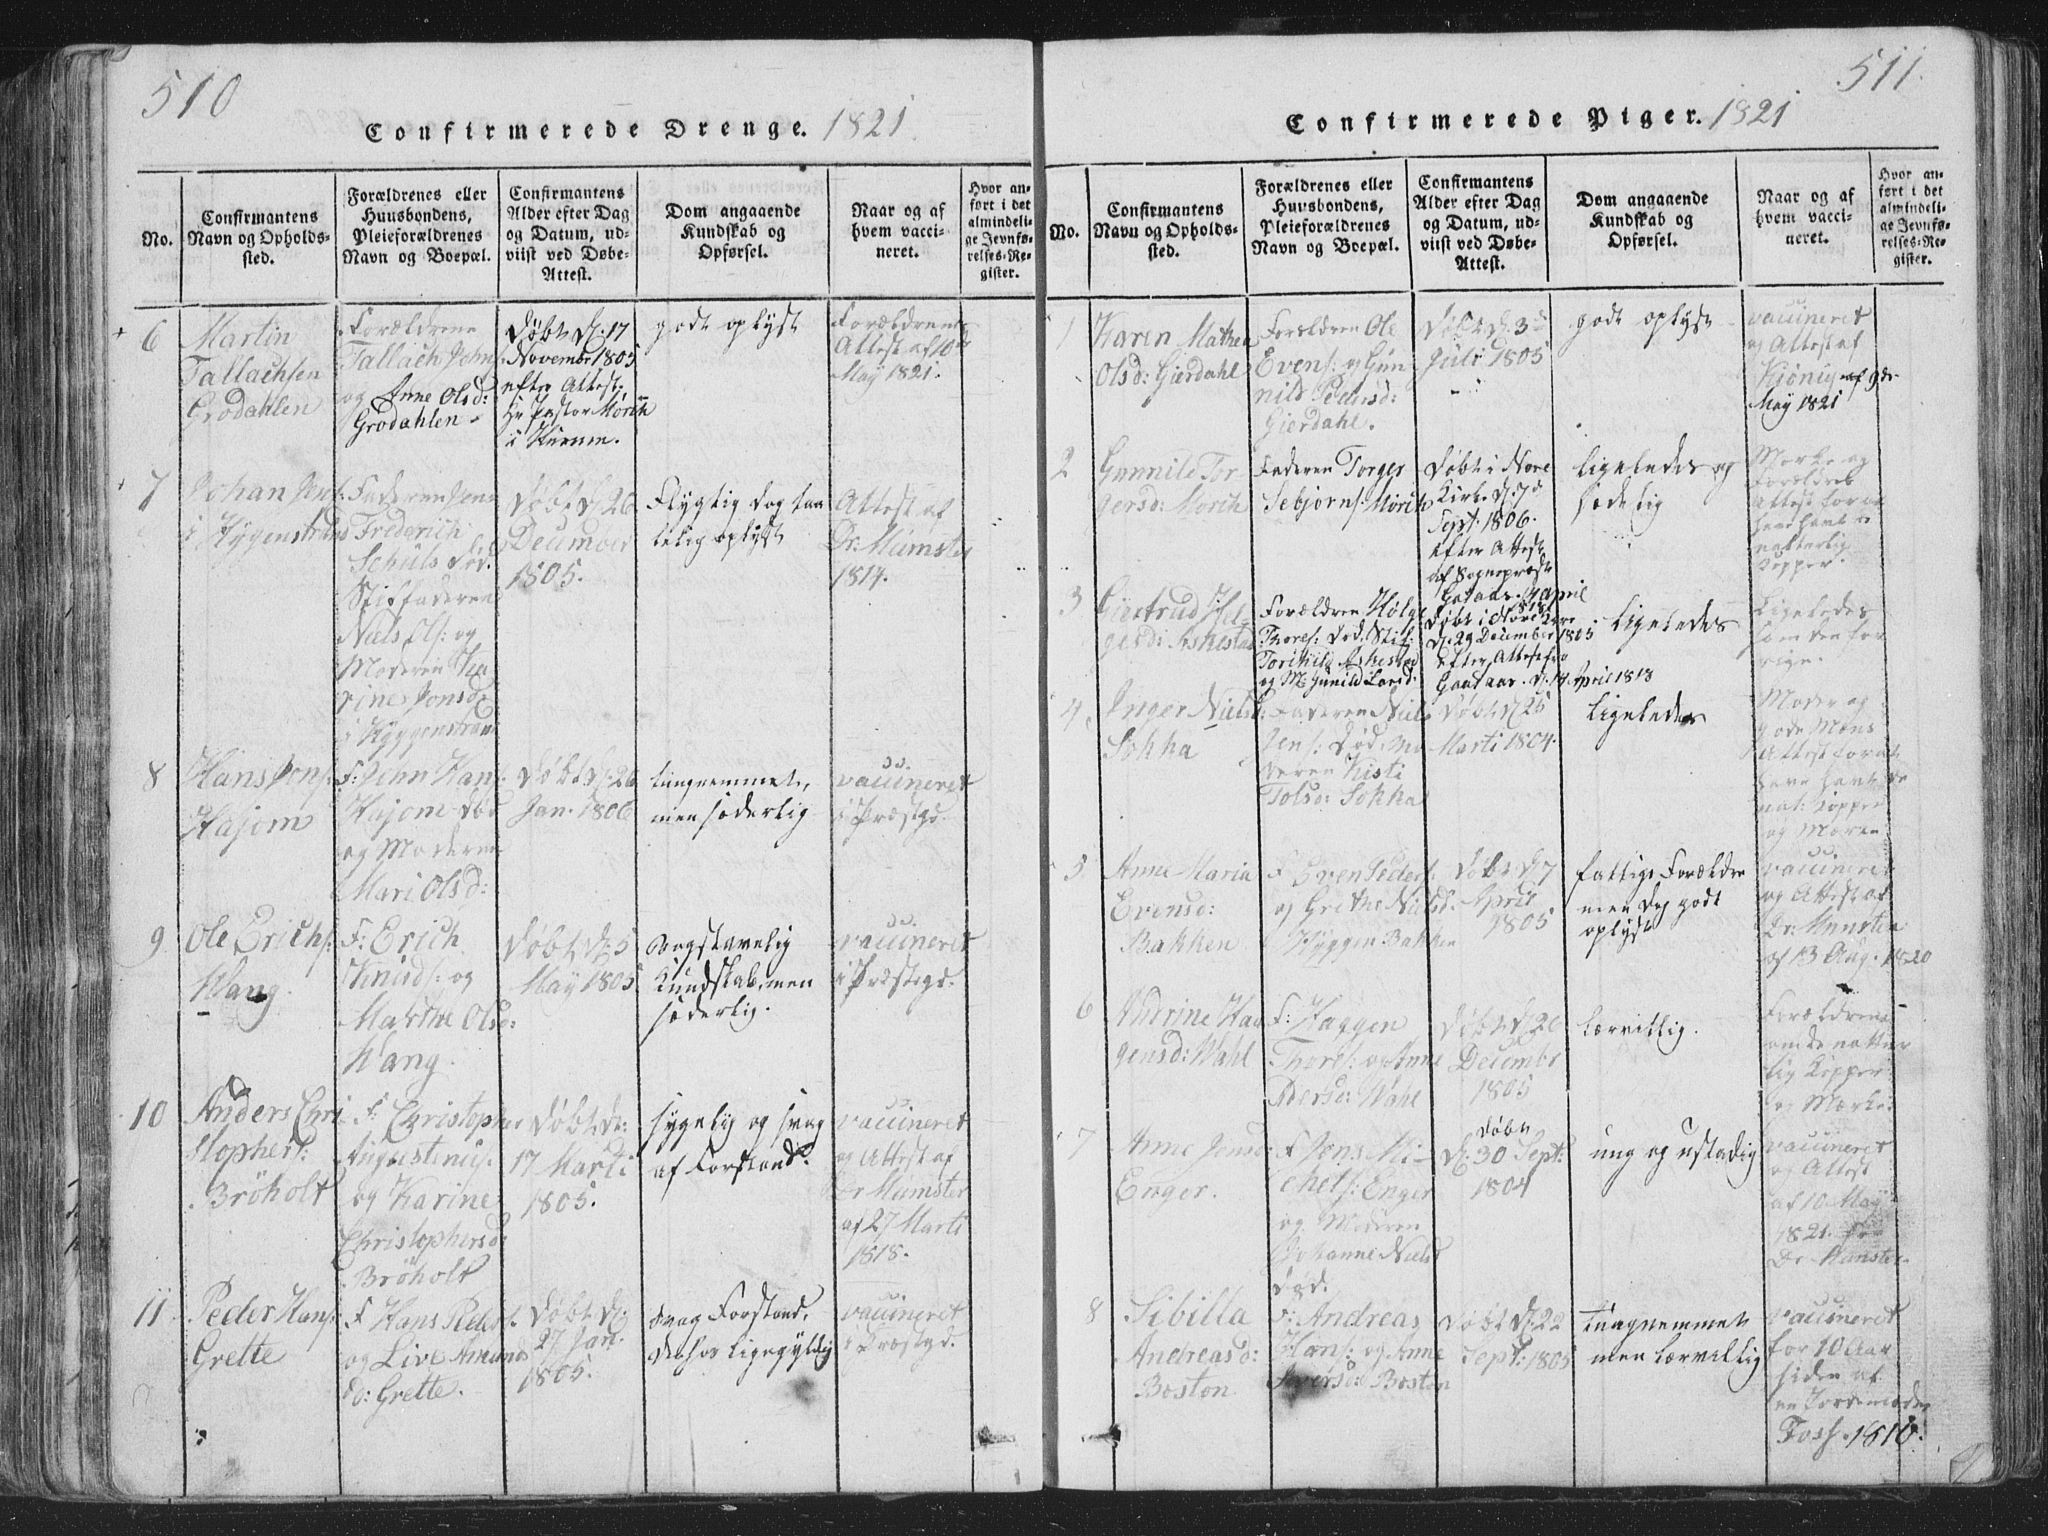 510
Confirmerede Drenge. 1821.
No.
Confirmantens
Navn og Opholds-
sted.
Forældrenes eller
Huusbondens,
Pleieforældrenes
Navn og Boepæl.
Confirmantens
Alder efter Dag
og Datum, ud-
viist ved Døbe-
Attest.
Dom angaaende
Kundskab og
Opførsel.
Naar og af
hvem vacci-
neret.
Hvor an-
ført i det
almindeli-
ge Jevnfø-
relses-Re-
gister.
6
Martin
Tallachsen
Grodahlen
Forældrene
Tallach Johns:
og Anne Olsd:
Grodahlen
Døbt d: 17
November 1805
efter Attest:
Hr Pastor Mørch
i Hurum.
godt oplyst
Forældrenes
Attest af 10de
May 1821.
7
Johan Jens:
i Hyggenstrand
Faderen Jens
Frederich
Schuls død.
Stiffaderen
Niels Ols: og
Moderen Ka-
rine Jonsd:
i Hyggenstrand
Døbt d: 26
December
1805.
Flygtig dog taa
lelig oplyst
Attest af
Dr: Münster
1814.
8
Hans Jons:
Hajom
F: John Hans:
Hajom død
og Moderen
Mari Olsd:
Døbt d: 26
Jan: 1806
tungnemmet,
men sæderlig
vaccineret
i Præstgd.
9
Ole Erichs:
Wang.
F: Erich
Knuds: og
Marthe Olsd:
Wang.
Døbt d: 5
May 1805
Bogstavelig
Kundskab, men
sæderlig.
vaccineret
i Præstegd.
10
Anders Chri-
stophers:
Bröholt
F: Christopher
Augustinus:
og Karine
Christophersd:
Bröholt
Døbt d:
17 Marti
1805.
sygelig og svag
af Forstand.
vaccineret
og Attest af
Dr Münster
af 27 Marti
1818.
11.
Peder Hans:
Grette
F Hans Peders:
og Live Amund
sd: Grette.
Døbt d:
27 Jan:
1805.
svag Forstand,
derhos ligegyldig
vaccineret
i Præstgd.
511.
Confirmerede Piger. 1821
No.
Confirmantens
Navn og Opholds-
sted.
Forældrenes eller
Huusbondens,
Pleieforældrenes
Navn og Boepæl.
Confirmantens
Alder efter Dag
og Datum, ud-
viist ved Døbe-
Attest.
Dom angaaende
Kundskab og
Opførsel.
Naar og af
hvem vacci-
neret.
Hvor an-
ført i det
almindeli-
ge Jevnfø-
relses-Re-
gister.
1
Karen Mathea
Olsd: Gierdahl
Forældren Ole
Evens: og Gun-
nild Pedersd:
Gierdahl.
Døbt d: 3de
Juli 1805
godt oplyst
vaccineret
og Attest af
Kiönig af 9de
May 1821
2
Gunnild Tor-
gersd: Mörch
Faderen Torger
Sebjørns: Mörch
Døbt i Nore
Kirke d: 7de
Sept: 1806.
Efter Attest
af Sognepræst
Gataas. 14 April
1818
ligeledes og
sædelig
Mærke og
Forældres
Attest for at
have havt de
naturlig
Kopper.
3
Giertrud Hel-
gesd: Askestad
Forældren Helge
Thores: død. Stif:
Torchild Askestad
og M: Gunild Larsd:
Døbt i Nore Kirke
d: 29 December 1805
efter Attest fra
Gaataas. d: 14 April 1818
ligeledes
Ligeledes
som den for
rige.
4
Inger Nielsd:
Sokka
Faderen Niels
Jens: død, Mo
deren Kisti
Tolsd: Sokka
Døbt d: 25
Marti 1804.
ligeledes
Moder og
gode Mens
Attest for at
have havt de
nat: Kopper
og Mærke
5
Anne Maria
Evensd:
Bakken
F Even Peders:
og Grethe Nielsd:
Hyggen Bakken
Døbt d: 7
April
1805
fattige Forældre
men dog godt
oplyst
vaccineret
og Attest af
Dr: Munster
af 13 Aug. 1820
6
Andrine Haa
gensd: Wahl
F: Haagen
Thores: og Anne
Adersd: Wahl
Døbt d: 26
December
1805
lærvillig.
Forældrene
om de nattur
lig Kopper
og Mærke.
7
Anne Jonsd:
Enger.
F Jons Mi-
chels: Enger
og Moderen
Johanne Nielsd
død.
Døbt
d: 30 Sept:
1804
ung og ustadig
vaccineret
og Attest
af 10 May
1821. for
Dr Münster
8
Sibilla
Andreasd:
Boston
F: Andreas
Hans: og Anne
Iversd: Boston
Døbt d: 22
Sept: 1805
tungnemmet
men lærvillig
vaccineret
for 10 Aar
siden af
en Jordemoder
Foss. 1810.